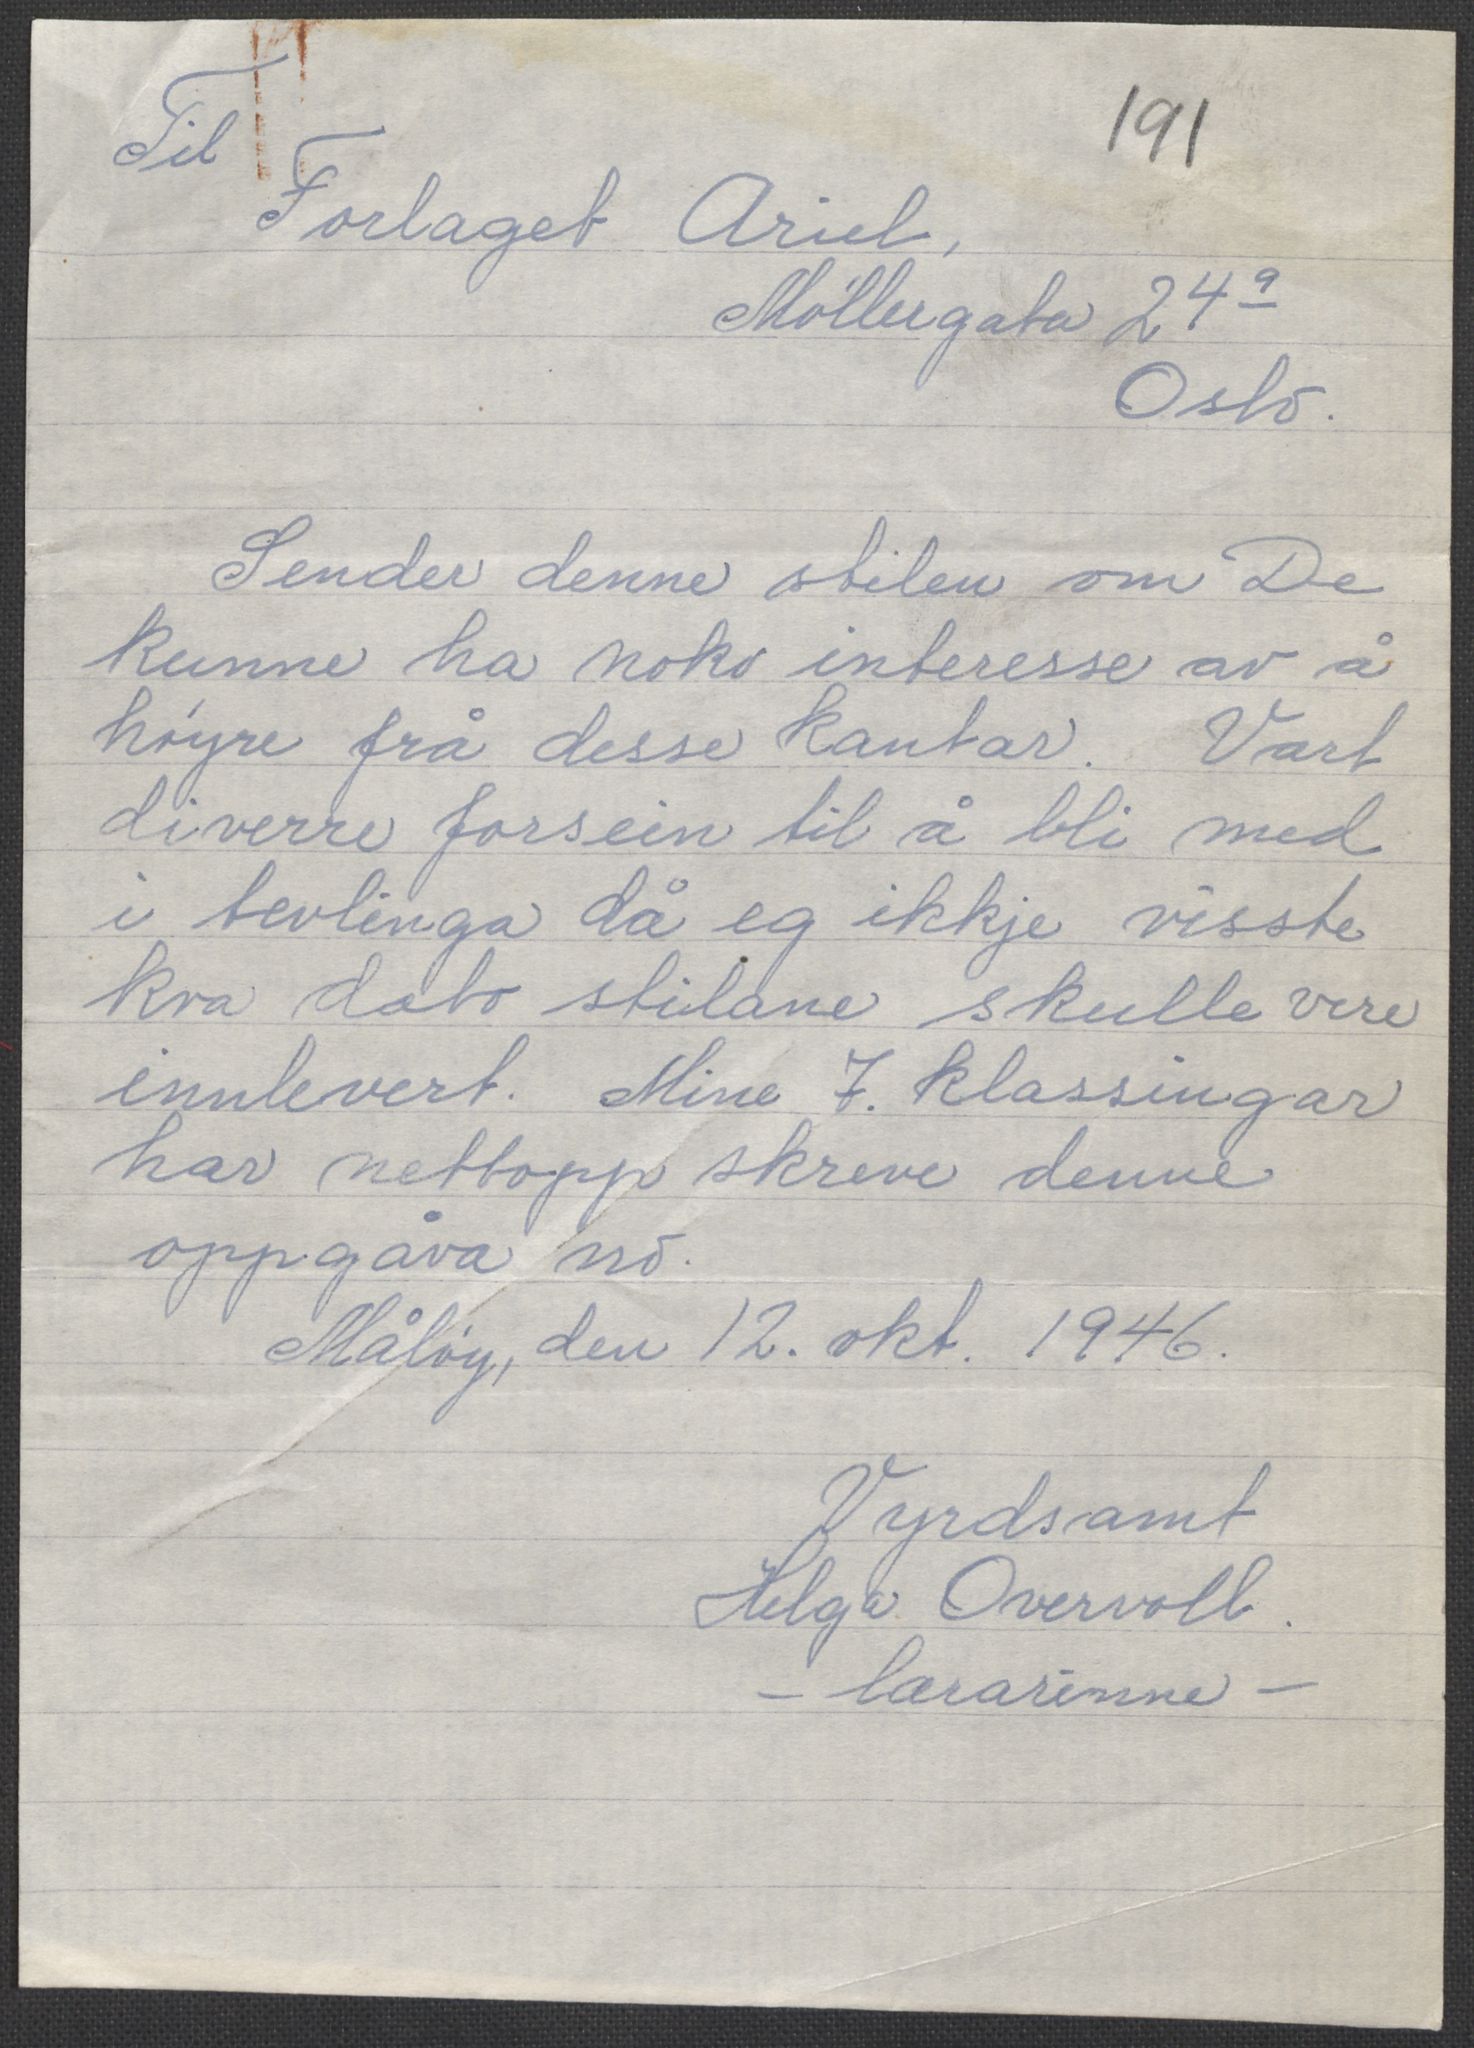 191
Til
Forlaget Ariel,
Möllergata 24a
Oslo.
Sender denne stilen om De
kunne ha noko interesse av å
höyre frå desse kantar. Vart
diverre forsein til å bli med
i tevlinga då eg ikkje visste
kva dato stilane skulle vere
innlevert. Mine 7. klassingar
har nettopp skreve denne
oppgåva no.
Målöy, den 12. okt. 1946.
Vyrdsamt
Helga Overvoll.
- lærarinne -